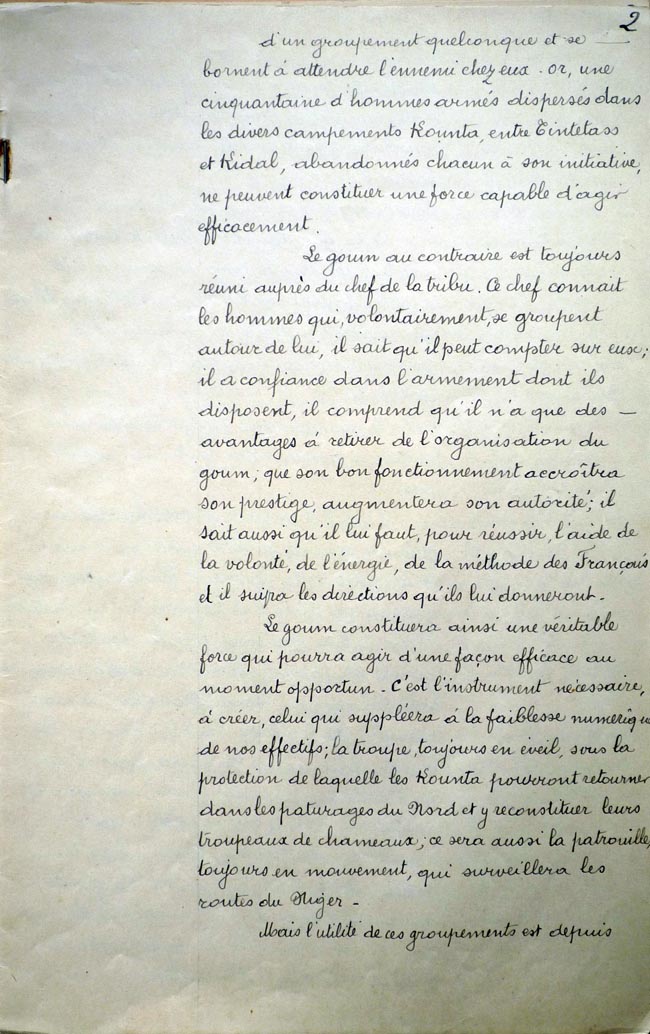 2
d'un groupement quelconque et se —
bornent á attendre l'ennemi chez eux. or, une
cinquantaine d'hommes armés dispersés dans
les divers campements Kounta, entre Tintetass
et Kidal, abandonnés chacun à son initiative,
ne peuvent constituer une force capable d'agir
efficacement.
Le goum au contraire est toujours
réuni auprès du chef de la tribu. Ce chef connait
les hommes qui, volontairement, se groupent
autour de lui, il sait qu'il peut compter sur eux;
il a confiance dans l'armement dont ils
disposent, il comprend qu'il n'a que des —
avantages á retirer de l'organisation du
goum; que son bon fonctionnement accroîtra
son prestige, augmentera son autorité; il
sait aussi qu'il lui faut, pour réussir, l'aide de
la volonté, de l'énergie, de la méthode des Français
et il suivra les directions qu'ils lui donneront.
Le goum constituera ainsi une véritable
force qui pourra agir d'une façon efficace au
moment opportun - C'est l'instrument nécessaire,
á créer, celui qui suppléera á la faiblesse numériqu
de nos effectifs; la troupe, toujours en éveil, sous la
protection de laquelle les Kounta pourront retourner
dans les paturages du Nord et y reconstituer leurs
troupeaux de chameaux; ce sera aussi la patrouille,
toujours en mouvement, qui surveillera les
routes du Niger -
Mais l'utilité de ces groupements est depuis